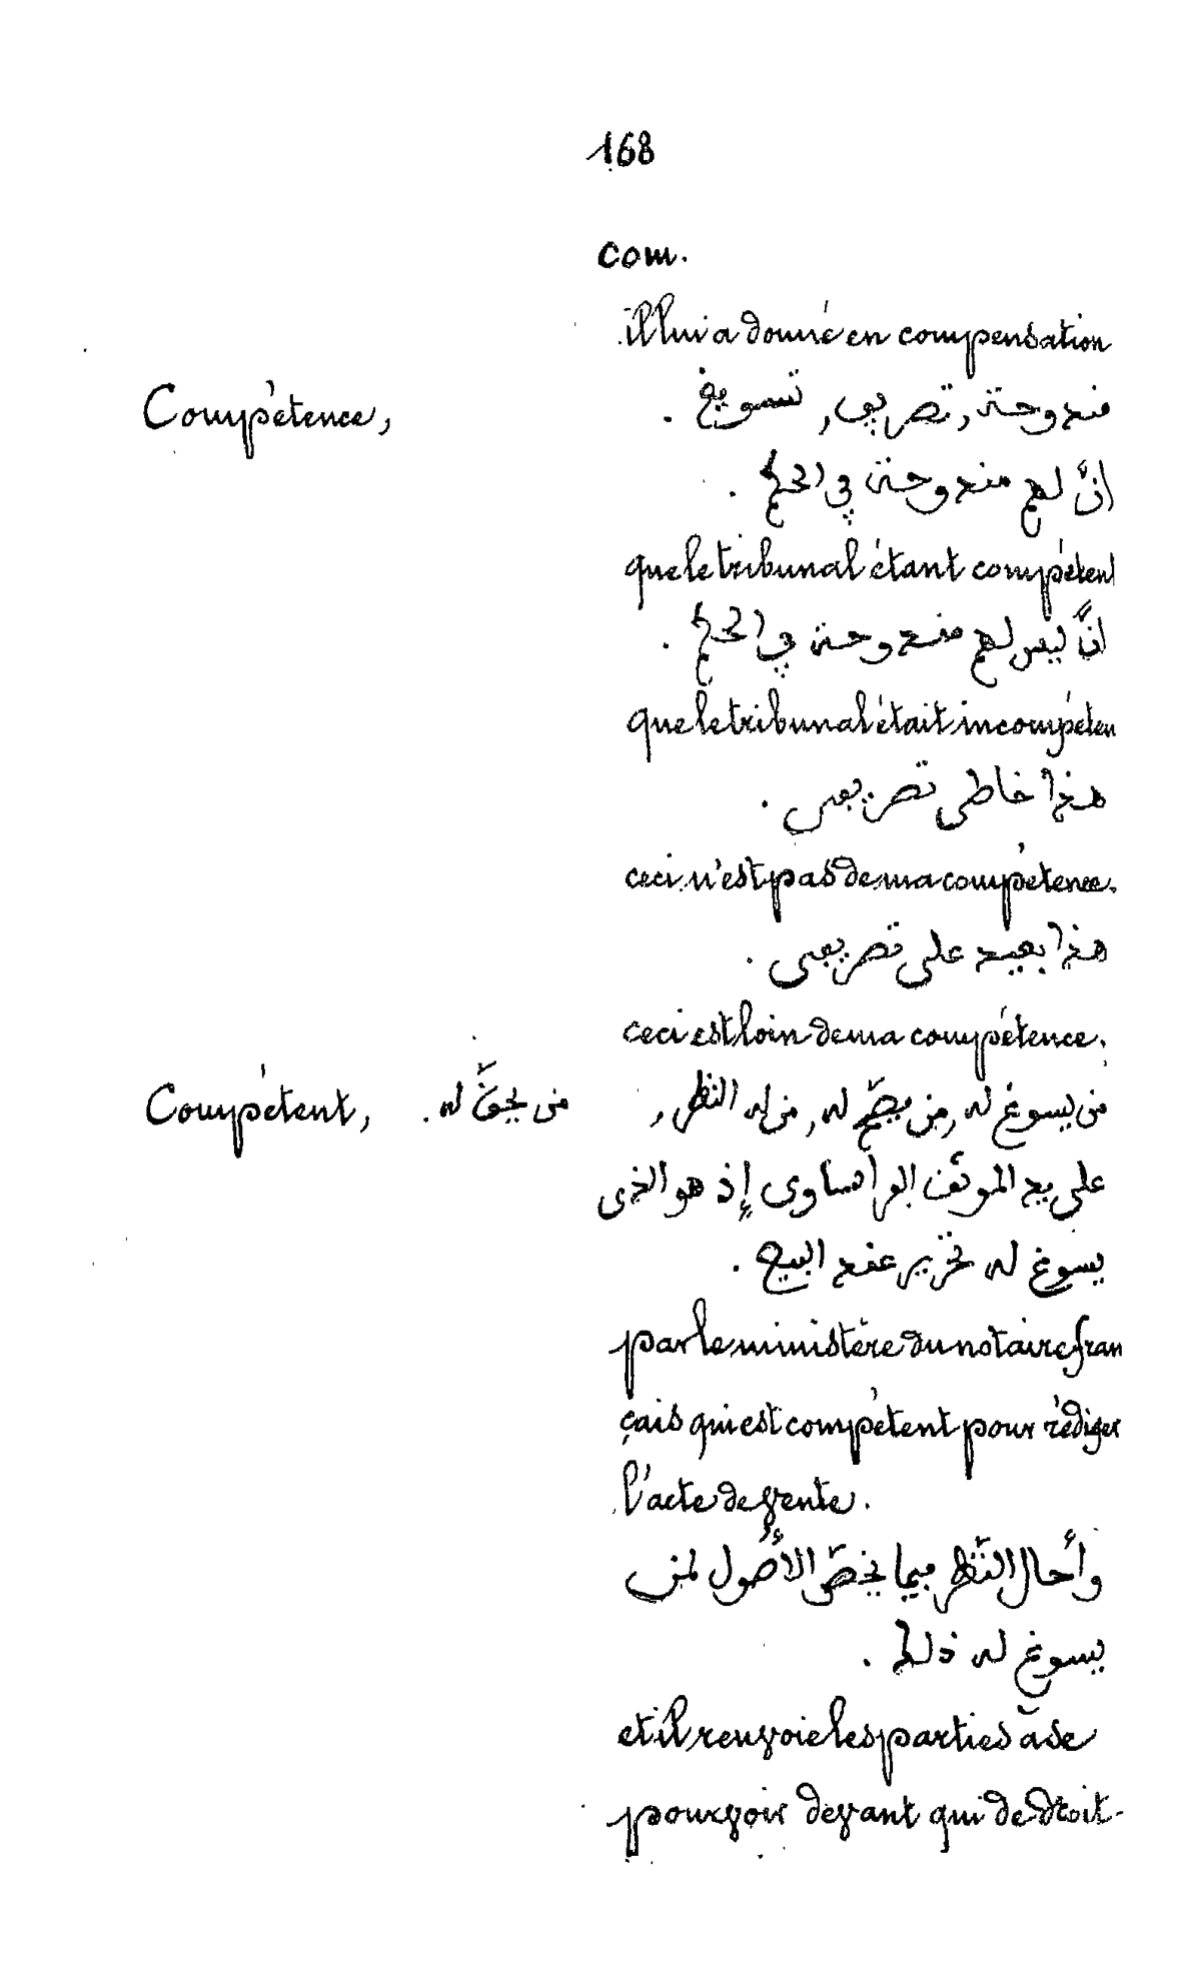 168
com.
il lui a donné en compensation
Compétence,
مندوحة, تصريف, تسويغ.
انّ لهم مندوحة في الحكم.
que le tribunal étant compétent
انّ ليس لهم مندوحة في الحكم.
que le tribunal était incompéten
هذا خاطى تصريفى.
ceci n'est pas de ma compétence.
هذا بعيد على تصريفى.
ceci est loin de ma compétence.
Compétent, من يحقّ له.
من يسوغ له, من يصحّ له, من له النظر,
على يد الموثق الفرانساوى إذ هو الذى
يسوغ له تحرير عقد البيع.
par le ministère du notaire fran
çais qui est compétent pour rédiger
l'acte de vente.
وأحال النّظر فيما يخصّ الأصول لمن
يسوغ له ذلك.
et il renvoie les parties à se
pourvoir devant qui de droit-